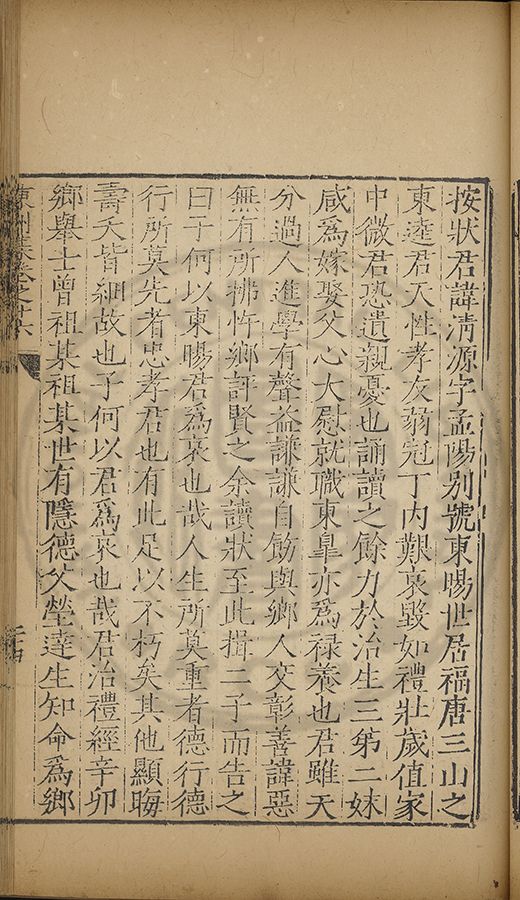 按狀君諱清源字孟陽別號東暘世居福唐三山之
東逵君天性孝友弱冠丁內艱哀毀如禮壯歲值家
中微君恐遺親憂也誦讀之餘力於治生三弟二妹
咸為嫁娶父心大慰就職東皐亦為祿養也君雖天
分過人進學有聲益謙謙自飭與鄉人交彰善諱惡
無有所拂忤鄉評賢之余讀狀至此揖二子而告之
曰子何以東暘君為哀也哉人生所莫重者德行德
行所莫先者忠孝君也有此足以不朽矣其他顯晦
壽夭皆細故也子何以君為哀也哉君治禮經辛卯
鄉舉士曾祖某祖某世有隱德父瑩達生知命為鄉